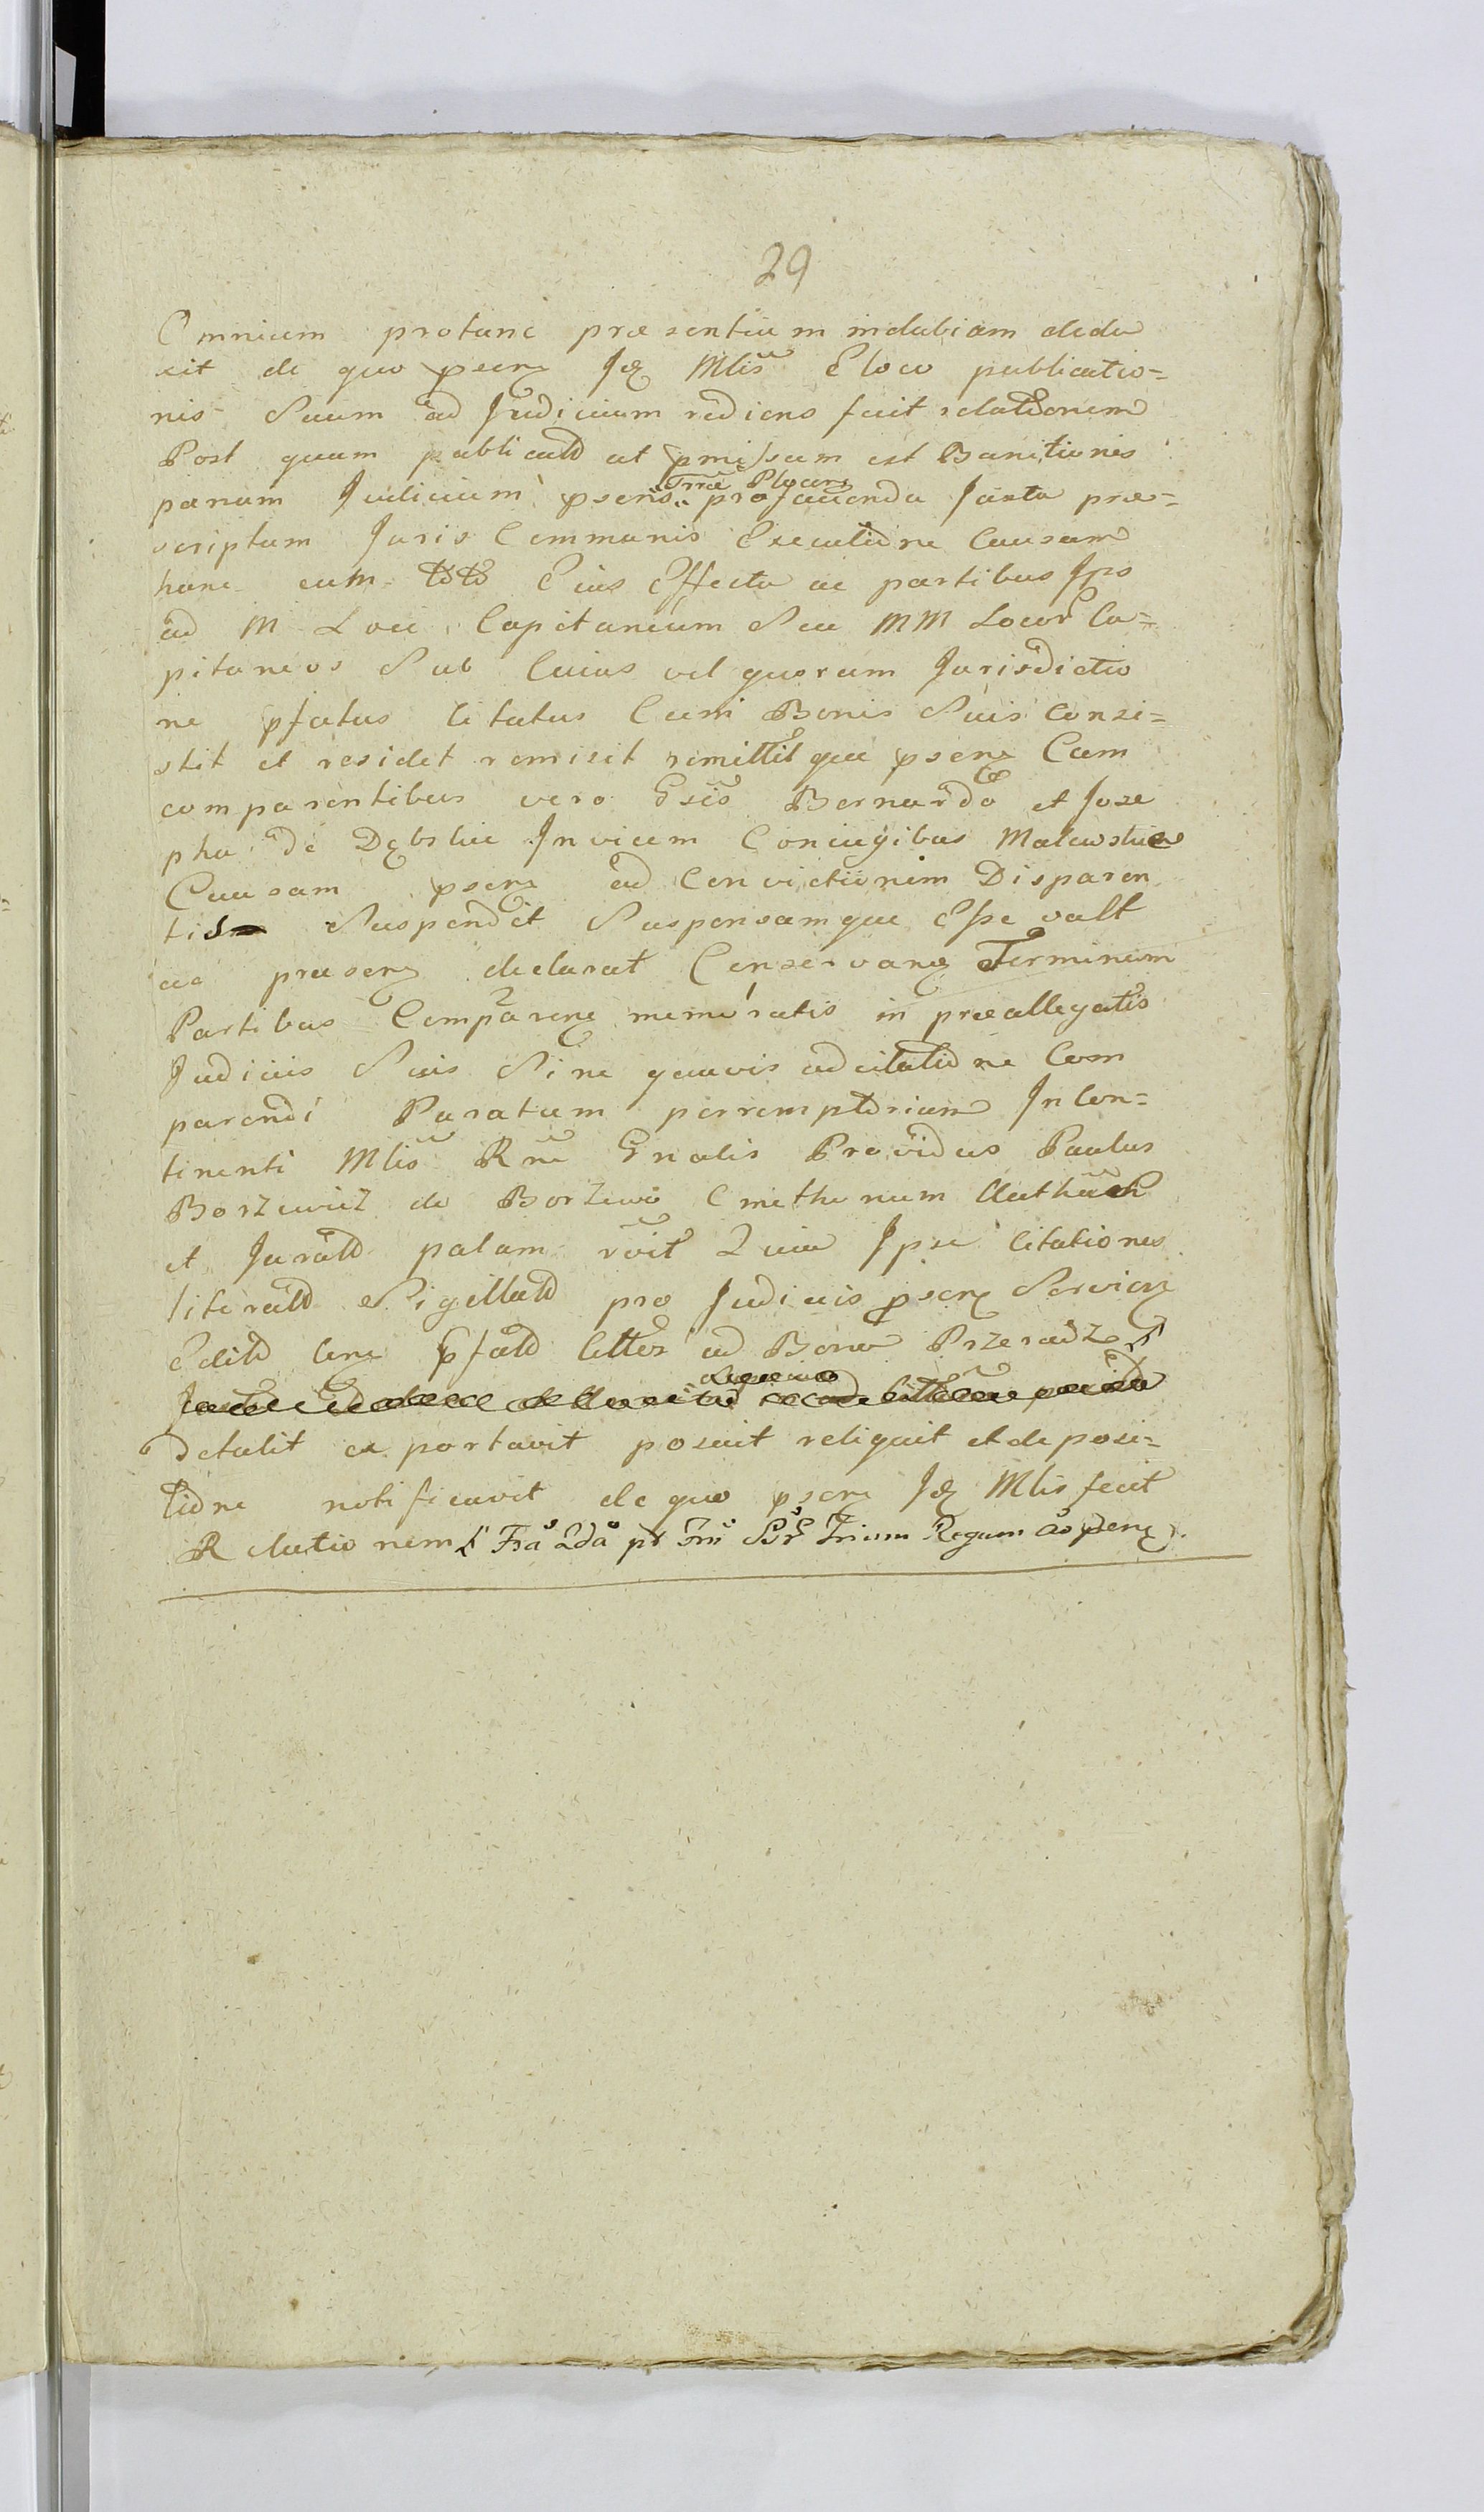 29
Omnium protunc præsentium indubiam dedu
xit de quo psens Jdē Mlis̃ E loco publicatio=
nis Suum ad Judicium rediens fecit relationem
Post quam publicatā ut pmissum est Banitionis
pænam Judicium psens Trræ Plocens pro facienda Juxta præ=
scriptum Juris Communis Executione Causam
hanc cum toto Eius Effectu ac partibus Ips
ad M Loci Capitaneum Seu MM Locor Ca=
pitaneos Sub Cuius vel quorum Jurisdictio
ne pfatus Citatus Cum Bonis Suis Consi=
stit et residet remisit remittitque psens Cum
comparentibus vero Gsis Bernardo et Jose
pha de Dębskie Invicem Coniugibus Malewskie
Causam psens ad Convictionem Disparen
tis Suspendit Suspensamque Esse vult
ac præsens declarat Conservans Terminum
Partibus Comparens memoratis in præallegatis
Judiciis Suis Sine quavis adcitatione Com
parendi Paratum perremptorium Incon=
tinenti Mlis̃ Rnĩ Gnalis Providus Paulus
Borzewicz de Borzewo Cmethonum Authen
et Jurato palam rõit Quia Ipse Citationes
literato Sigillato pro Judiciis psens Servien
Edito Cens pfato Citter ad Bona Przeradz
detulit ex portavit posuit reliquit et de posi=
tione notificavit de quo psens Jdē Mlis fecit
Relationem Fiã 2dã pt Frii Trium Regum ão psens.